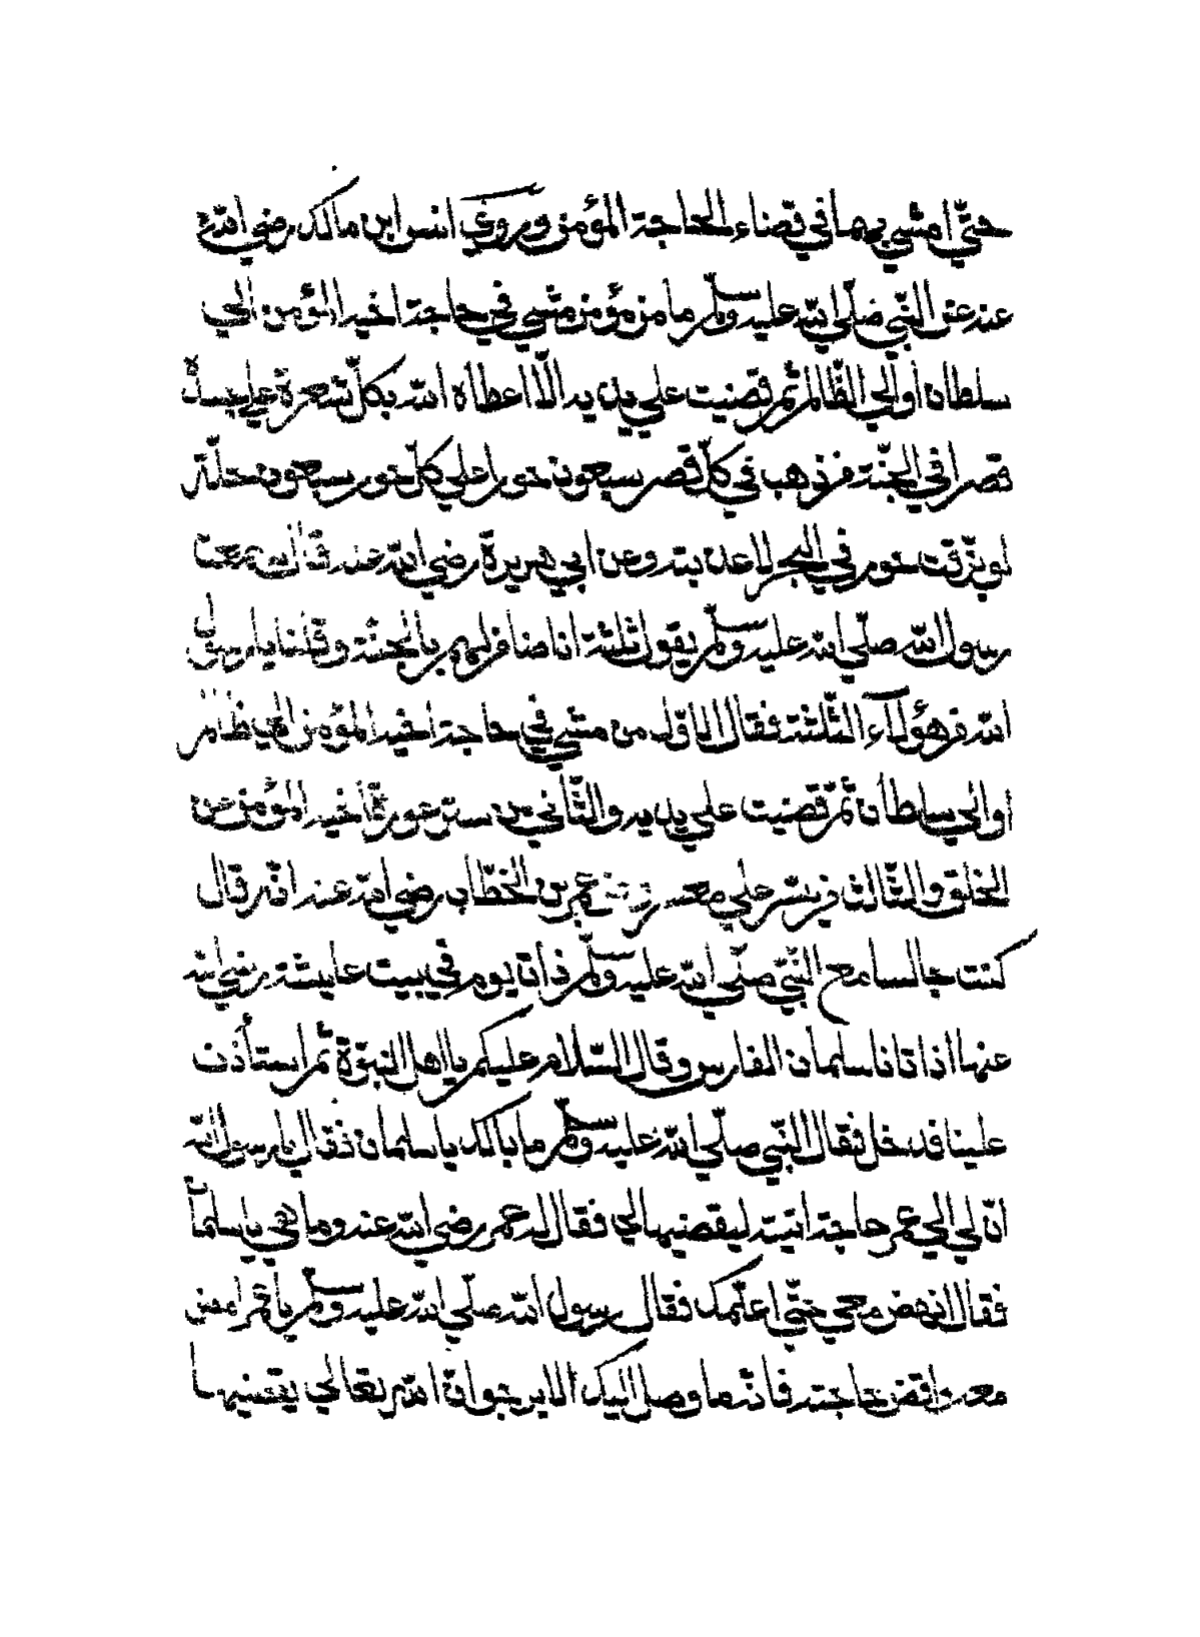 حتّى امشي بهما في قضاء الحاجة المؤمن وروي انس ابن مالك رضي الله
عنه عن النّبي صلّى الله عليه وسلّم ما من مؤمن مشي في حاجة اخيه المؤمن الي
سلطان أو الي الظّالم ثم قضيت علي يديه الّا اعطاه الله بكلّ شعرة علي جسده
قصرا في الجنّة من ذهب في كلّ قصر سبعون حورا علي كلّ حور سبعون حلّة
لو بزقت حور في البحر لاعذبته وعن ابي هريرة رضي الله عنه قال سمعت
رسول الله صلّي الله عليه وسلّم يقول ثلثة انا ضامن لهم بالجنّة وقلنا يا رسول
الله من هؤلاء الثّلثة فقال الاوّل من مشي في حاجة اخيه المؤمن الي ظالم
أو الي سلطان ثمّ قضيت علي يديه والثّاني من ستر عورة أخيه المؤمن عن
الخلق والثّالث من يسّر علي معسر عمر بن الخطّاب رضي الله عنه انّه قال
كنت جالسا مع النّبيّ صلّي الله عليه وسلّم ذات يوم في بيت عايشة رضي الله
عنها اذا اتانا سلمان الفارس وقال السّلام عليكم يا اهل النبوّة ثم استأذن
علينا فدخل فقال النّبي صلّي الله عليه وسلّم ما بالك يا سلمان فقال يا رسول الله
انّ لي الي عمر حاجة اتيته ليقضيها لي فقال له عمر رضي الله عنه وما هي يا سلمان
فقال انهض معي حتّي اعلّمك فقال رسول الله صلّي الله عليه وسلّم يا عمر امض
معه واقض حاجته فانّه ما وصل اليك الا يرجو انّ الله تعالي يقضيها